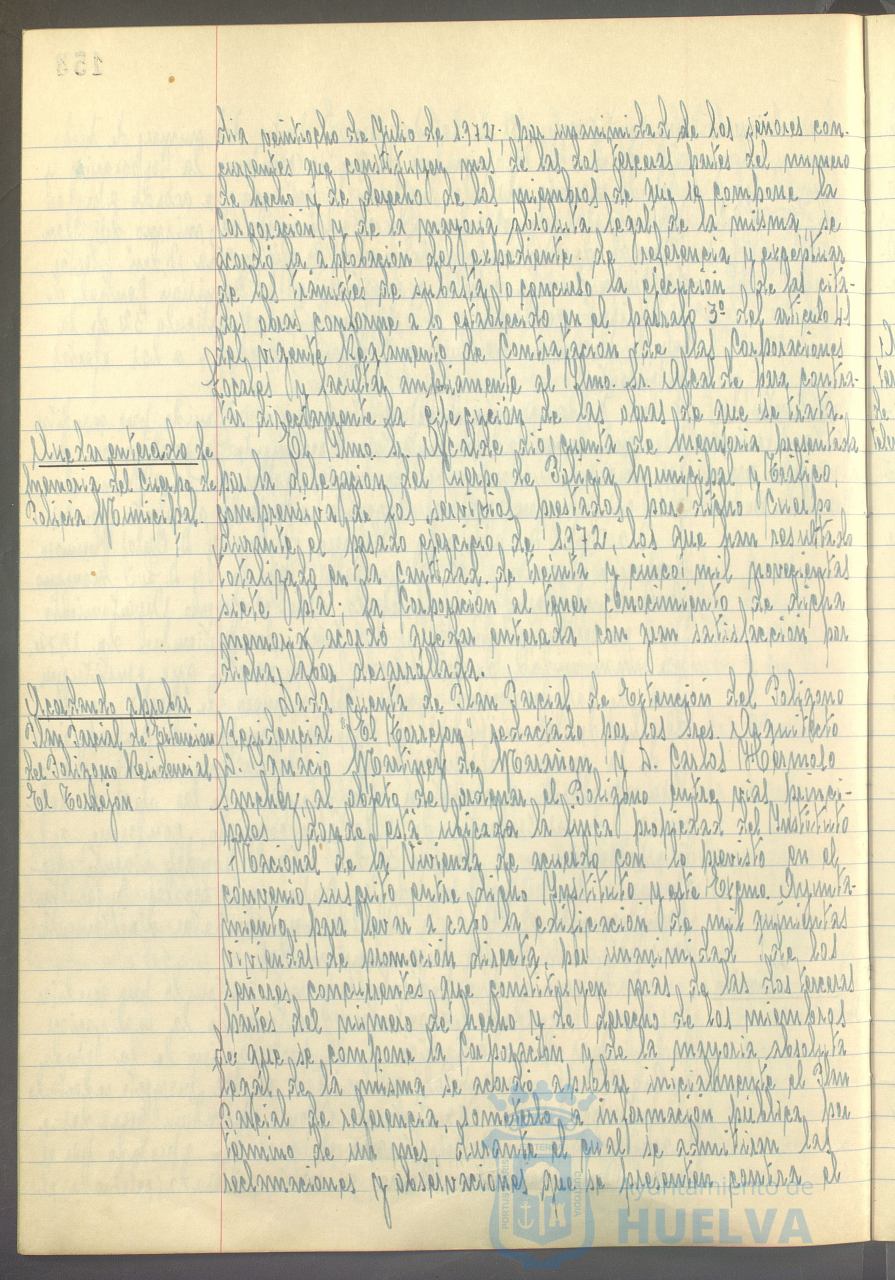 dia veintiocho de Julio de 1972; por unanimidad de los señores con-
currentes que constituyen mas de las dos terceras partes del numero
de hecho y de derecho de los miembros de que se compone la
Corporación y de la mayoria absoluta legal de la misma, se
acordó la aprobación del expediente de referencia y exceptuar
de los trámites de subasta o concurso la ejecución de las cita-
das obras conforme a lo establecido en el párrafo 3º del articulo 41
del vigente Reglamento de Contratacion de las Corporaciones
Locales y facultar ampliamente al Ilmo. Sr. Alcalde para contra-
tar directamente la ejecución de las obras de que se trata.
Quedar enterado de
Memoria del Cuerpo de
Policia Municipal.
El Ilmo. Sr. Alcalde dió cuenta de Memoria presentada
por la delegacion del Cuerpo de Policia Municipal y Tráfico,
comprensiva de los servicios prestados por dicho Cuerpo
durante el pasado ejercicio de 1972, los que han resultado
totalizado en la cantidad de treinta y cinco mil novecientas
siete ptas; la Corporación al tener conocimiento de dicha
memoria acordó quedar enterada con gran satisfacción por
dicha labor desarrollada.
Acordando aprobar
Plan Parcial de Extencion
del Poligono Residencial
El Torrejon
Dada cuenta de Plan Parcial de Extención del Poligono
Residencial "El Torrejon" redactado por los Sres. Arquitecto
D. Ignacio Martinez de Marañon y D. Carlos Hermoso
Sanchez, al objeto de ordenar el Poligono entre vias princi-
pales donde está ubicada la finca propiedad del Instituto
Nacional de la Vivienda de acuerdo con lo previsto en el
convenio suscrito entre dicho Instituto y este Excmo. Ayunta-
miento, para llevar a cabo la edificación de mil quinientas
viviendas de promoción directa, por unanimidad de los
señores concurrentes que constituyen mas de las dos terceras
partes del numero de hecho y de derecho de los miembros
de que se compone la Corporación y de la mayoria absoluta
legal de la misma se acordó aprobar inicialmente el Plan
Parcial de referencia, someterlo a información publica por
termino de un mes, durante el cual se admitiran las
reclamaciones y observaciones que se presenten contra el
Ayuntamiento de
HUELVA